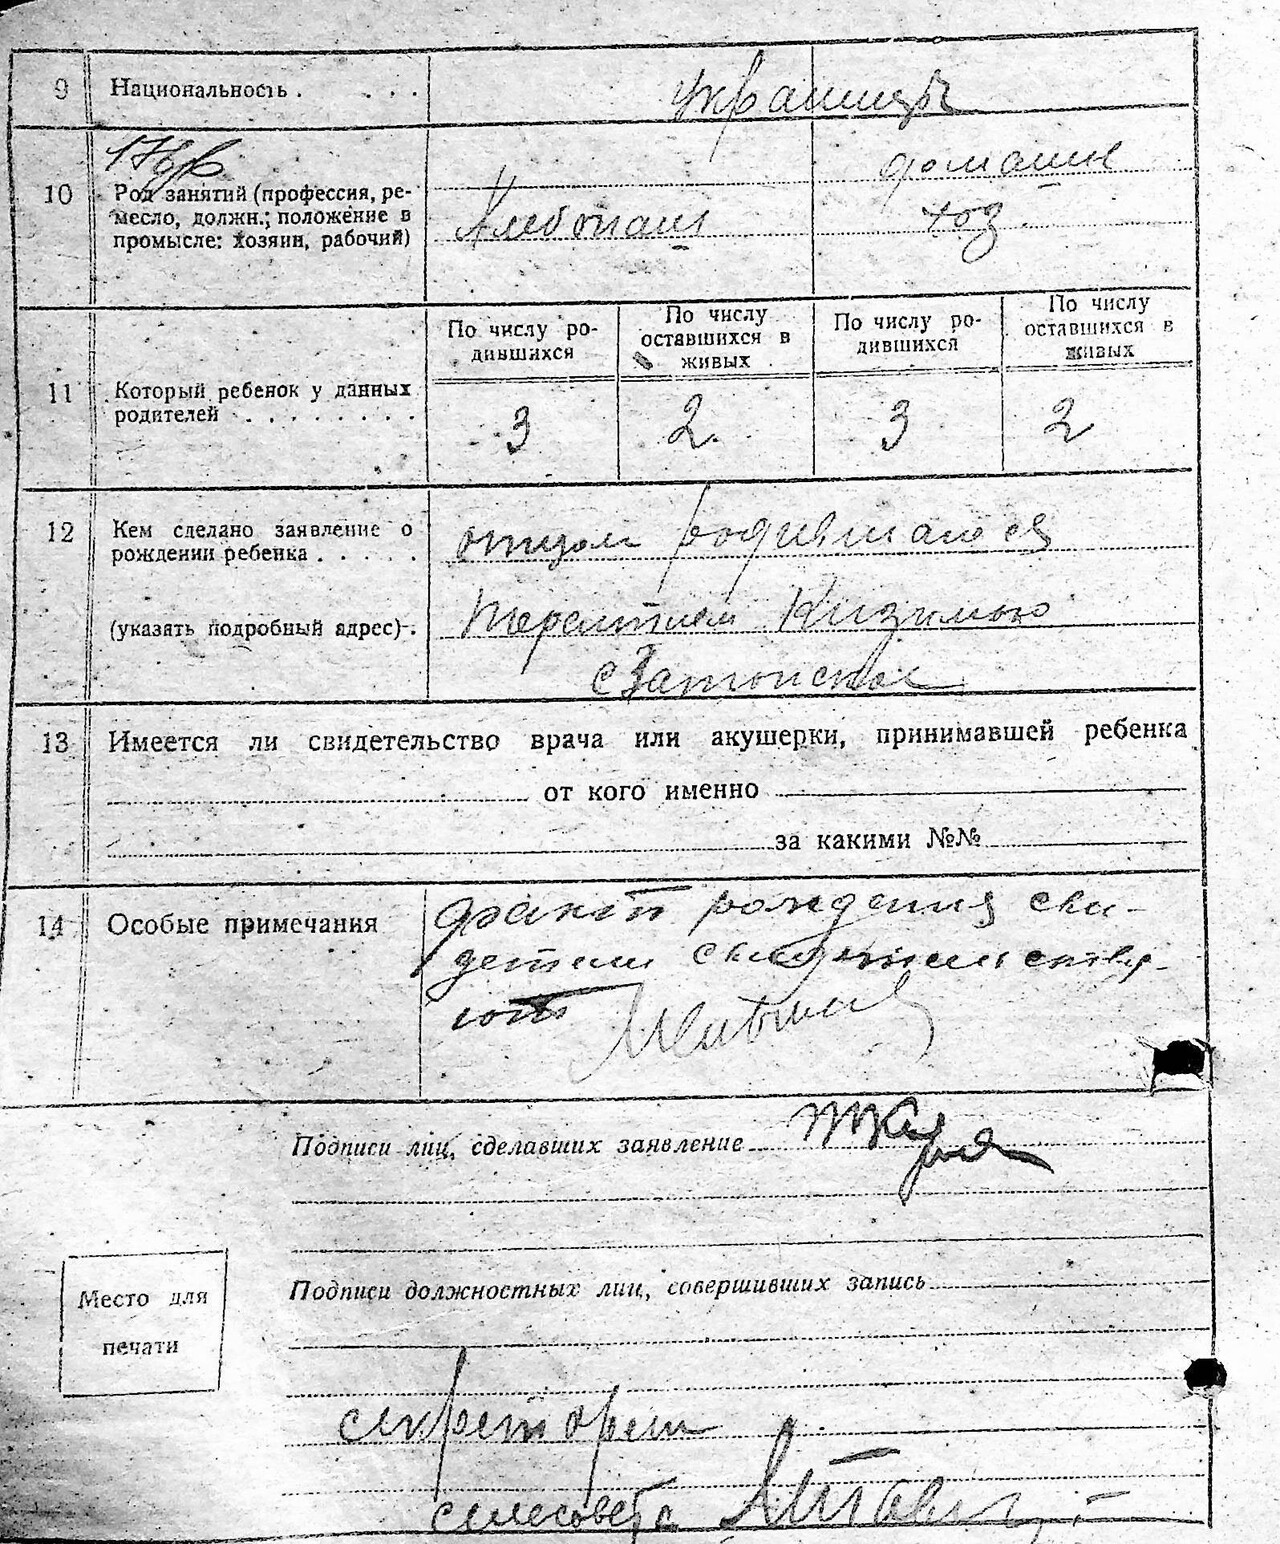 9 Национальность . . . . украинцы
10 Род занятий (профессия, ре-
месло, должн.; положение в
промысле: хозяин, рабочий)
Хлебопаш
домашн
хоз
По числу ро-
дившихся
По числу
оставшихся в
живых
По числу ро-
дившихся
По числу
оставшихся в
живых
11 Который ребенок у данных
родителей . . . . . . . .
3 2 3 2
12 Кем сделано заявление о
рождении ребенка . . . . .
(указать подробный адрес) .
отцом родившагося
Терентием
с
13 Имеется ли свидетельство врача или акушерки, принимавшей ребенка
от кого именно
за какими №№
14 Особые примечания
факт рождения сви-
детели свидетельству-
ют
Подписи лиц, сделавших заявление
Подписи должностных лиц, совершивших запись
Место для
печати
секретарем
сельсовета